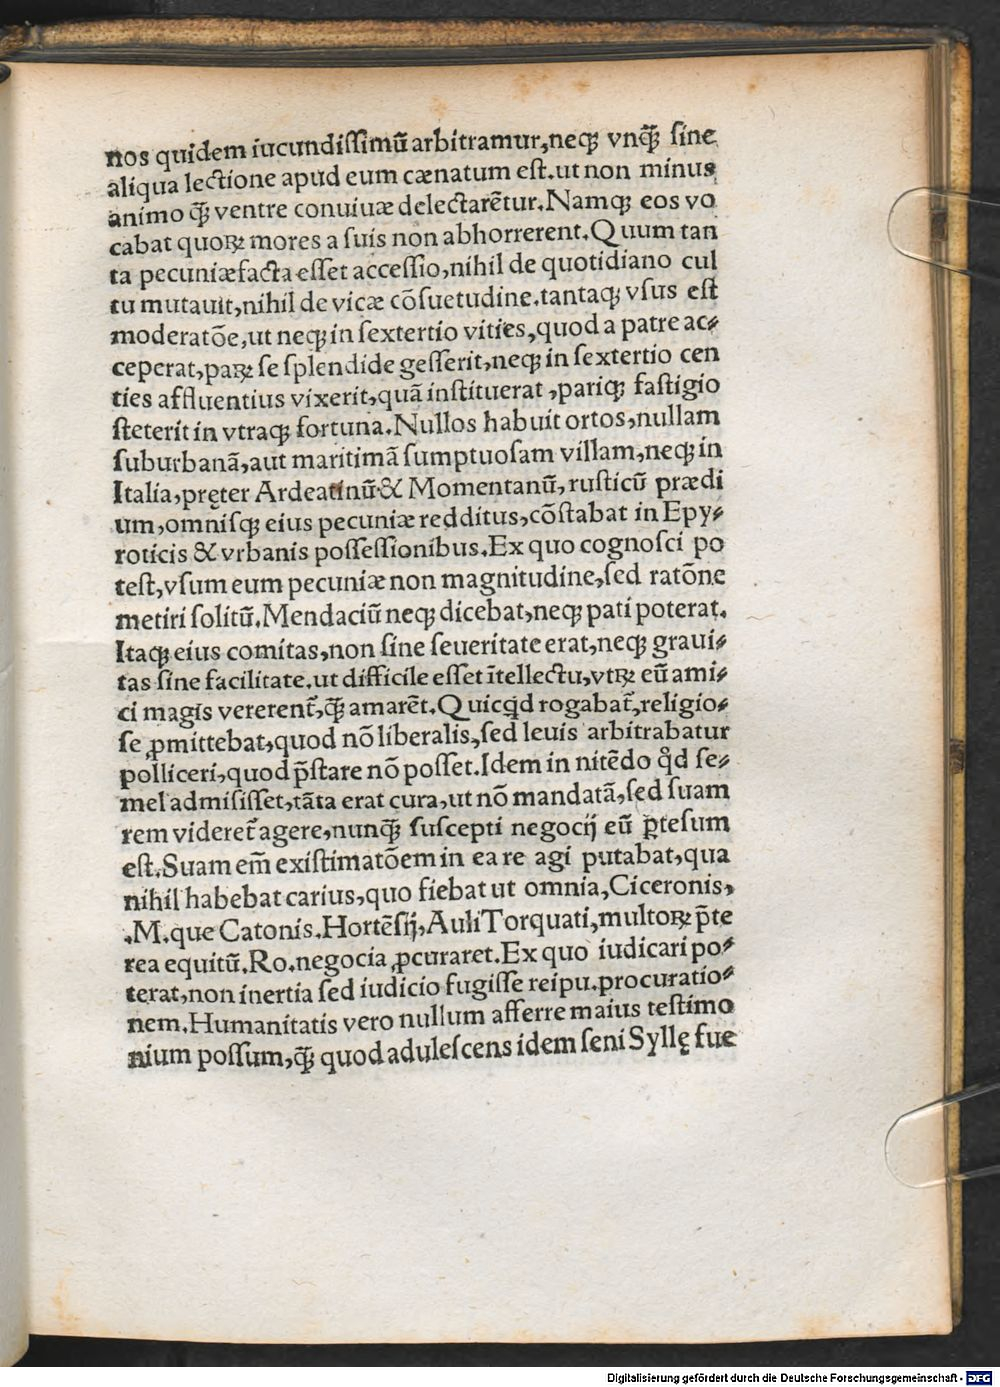 nos quidem iucundissimū arbitramur,neqꝫ vnqꝫ̃ sine
aliqua lectione apud eum cænatum est.ut non minus
animo qꝫ̃ ventre conuiuæ delectarētur.Namqꝫ eos vo
cabat quoꝝ mores a suis non abhorrerent.Quum tan
ta pecuniæ facta esset accessio,nihil de quotidiano cul
tu mutauit,nihil de vicæ cōsuetudine.tantaqꝫ vsus est
moderatōe,ut neqꝫ in sextertio vities,quod a patre ac⸗
ceperat,paꝝ se splendide gesserit,neqꝫ in sextertio cen
ties affluentius vixerit,quā instituerat ,pariqꝫ fastigio
steterit in vtraqꝫ fortuna.Nullos habuit ortos,nullam
suburbanā,aut maritimā sumptuosam villam,neqꝫ in
Italia,pręter Ardeatinū.& Momentanū,rusticū prædi
um,omnisqꝫ eius pecuniæ redditus,cōstabat in Epy⸗
roticis & vrbanis possessionibus.Ex quo cognosci po
test,vsum eum pecuniæ non magnitudine,sed ratōne
metiri solitū.Mendaciū neqꝫ dicebat,neqꝫ pati poterat.
Itaqꝫ eius comitas,non sine seueritate erat,neqꝫ graui⸗
tas sine facilitate.ut difficile esset ītellectu,vtꝝ eū ami⸗
ci magis vererent᷑,qꝫ̃ amarēt.Quicqͥd rogabat᷑,religio⸗
se ꝓmittebat,quod nō liberalis,sed leuis arbitrabatur
polliceri,quod p̄stare nō posset.Idem in nitēdo qͦd se⸗
mel admisisset,tāta erat cura,ut nō mandatā,sed suam
rem videret᷑ agere,nunqꝫ̃ suscepti negocij eū ꝑtesum
est.Suam em̄ existimatōem in ea re agi putabat,qua
nihil habebat carius,quo fiebat ut omnia,Ciceronis,
.M.que Catonis.Hortēsij,Auli Torquati,multoꝝ p̄te
rea equitū.Ro.negocia ꝓcuraret.Ex quo iudicari po⸗
terat,non inertia sed iudicio fugisse reipu.procuratio⸗
nem.Humanitatis vero nullum afferre maius testimo
nium possum,qꝫ̃ quod adulescens idem seni Syllę fue
Digitalisierung gefördert durch die Deutsche Forschungsgemeinschaft - DFG